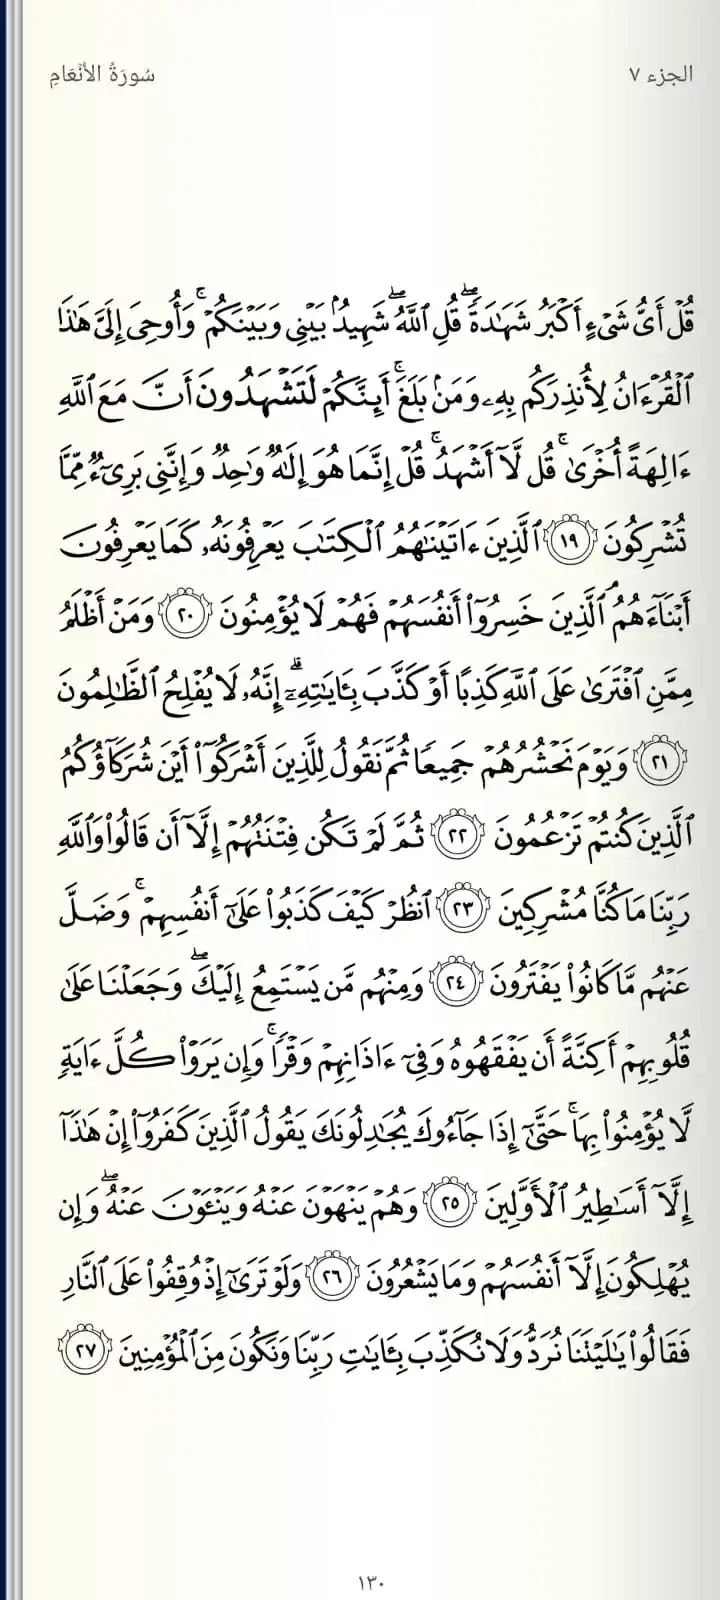 الجزء ٧
سُورَةُ الأَنْعَامِ
قُلْ أَىُّ شَىْءٍ أَكْبَرُ شَهَـٰدَةً ۖ قُلِ ٱللَّهُ ۖ شَهِيدٌۢ بَيْنِى وَبَيْنَكُمْ ۚ وَأُوحِىَ إِلَىَّ هَـٰذَا
ٱلْقُرْءَانُ لِأُنذِرَكُم بِهِۦ وَمَنۢ بَلَغَ ۚ أَئِنَّكُمْ لَتَشْهَدُونَ أَنَّ مَعَ ٱللَّهِ
ءَالِهَةً أُخْرَىٰ ۚ قُل لَّآ أَشْهَدُ ۚ قُلْ إِنَّمَا هُوَ إِلَـٰهٌ وَٰحِدٌ وَإِنَّنِى بَرِىٓءٌ مِّمَّا
تُشْرِكُونَ ١٩ ٱلَّذِينَ ءَاتَيْنَـٰهُمُ ٱلْكِتَـٰبَ يَعْرِفُونَهُۥ كَمَا يَعْرِفُونَ
أَبْنَآءَهُمُ ۘ ٱلَّذِينَ خَسِرُوٓا۟ أَنفُسَهُمْ فَهُمْ لَا يُؤْمِنُونَ ٢٠ وَمَنْ أَظْلَمُ
مِمَّنِ ٱفْتَرَىٰ عَلَى ٱللَّهِ كَذِبًا أَوْ كَذَّبَ بِـَٔايَـٰتِهِۦٓ ۗ إِنَّهُۥ لَا يُفْلِحُ ٱلظَّـٰلِمُونَ
٢١ وَيَوْمَ نَحْشُرُهُمْ جَمِيعًا ثُمَّ نَقُولُ لِلَّذِينَ أَشْرَكُوٓا۟ أَيْنَ شُرَكَآؤُكُمُ
ٱلَّذِينَ كُنتُمْ تَزْعُمُونَ ٢٢ ثُمَّ لَمْ تَكُن فِتْنَتُهُمْ إِلَّآ أَن قَالُوا۟ وَٱللَّهِ
رَبِّنَا مَا كُنَّا مُشْرِكِينَ ٢٣ ٱنظُرْ كَيْفَ كَذَبُوا۟ عَلَىٰٓ أَنفُسِهِمْ ۚ وَضَلَّ
عَنْهُم مَّا كَانُوا۟ يَفْتَرُونَ ٢٤ وَمِنْهُم مَّن يَسْتَمِعُ إِلَيْكَ ۖ وَجَعَلْنَا عَلَىٰ
قُلُوبِهِمْ أَكِنَّةً أَن يَفْقَهُوهُ وَفِىٓ ءَاذَانِهِمْ وَقْرًا ۚ وَإِن يَرَوْا۟ كُلَّ ءَايَةٍ
لَّا يُؤْمِنُوا۟ بِهَا ۚ حَتَّىٰٓ إِذَا جَآءُوكَ يُجَـٰدِلُونَكَ يَقُولُ ٱلَّذِينَ كَفَرُوٓا۟ إِنْ هَـٰذَآ
إِلَّآ أَسَـٰطِيرُ ٱلْأَوَّلِينَ ٢٥ وَهُمْ يَنْهَوْنَ عَنْهُ وَيَنْـَٔوْنَ عَنْهُ ۖ وَإِن
يُهْلِكُونَ إِلَّآ أَنفُسَهُمْ وَمَا يَشْعُرُونَ ٢٦ وَلَوْ تَرَىٰٓ إِذْ وُقِفُوا۟ عَلَى ٱلنَّارِ
فَقَالُوا۟ يَـٰلَيْتَنَا نُرَدُّ وَلَا نُكَذِّبَ بِـَٔايَـٰتِ رَبِّنَا وَنَكُونَ مِنَ ٱلْمُؤْمِنِينَ ٢٧
١٣٠